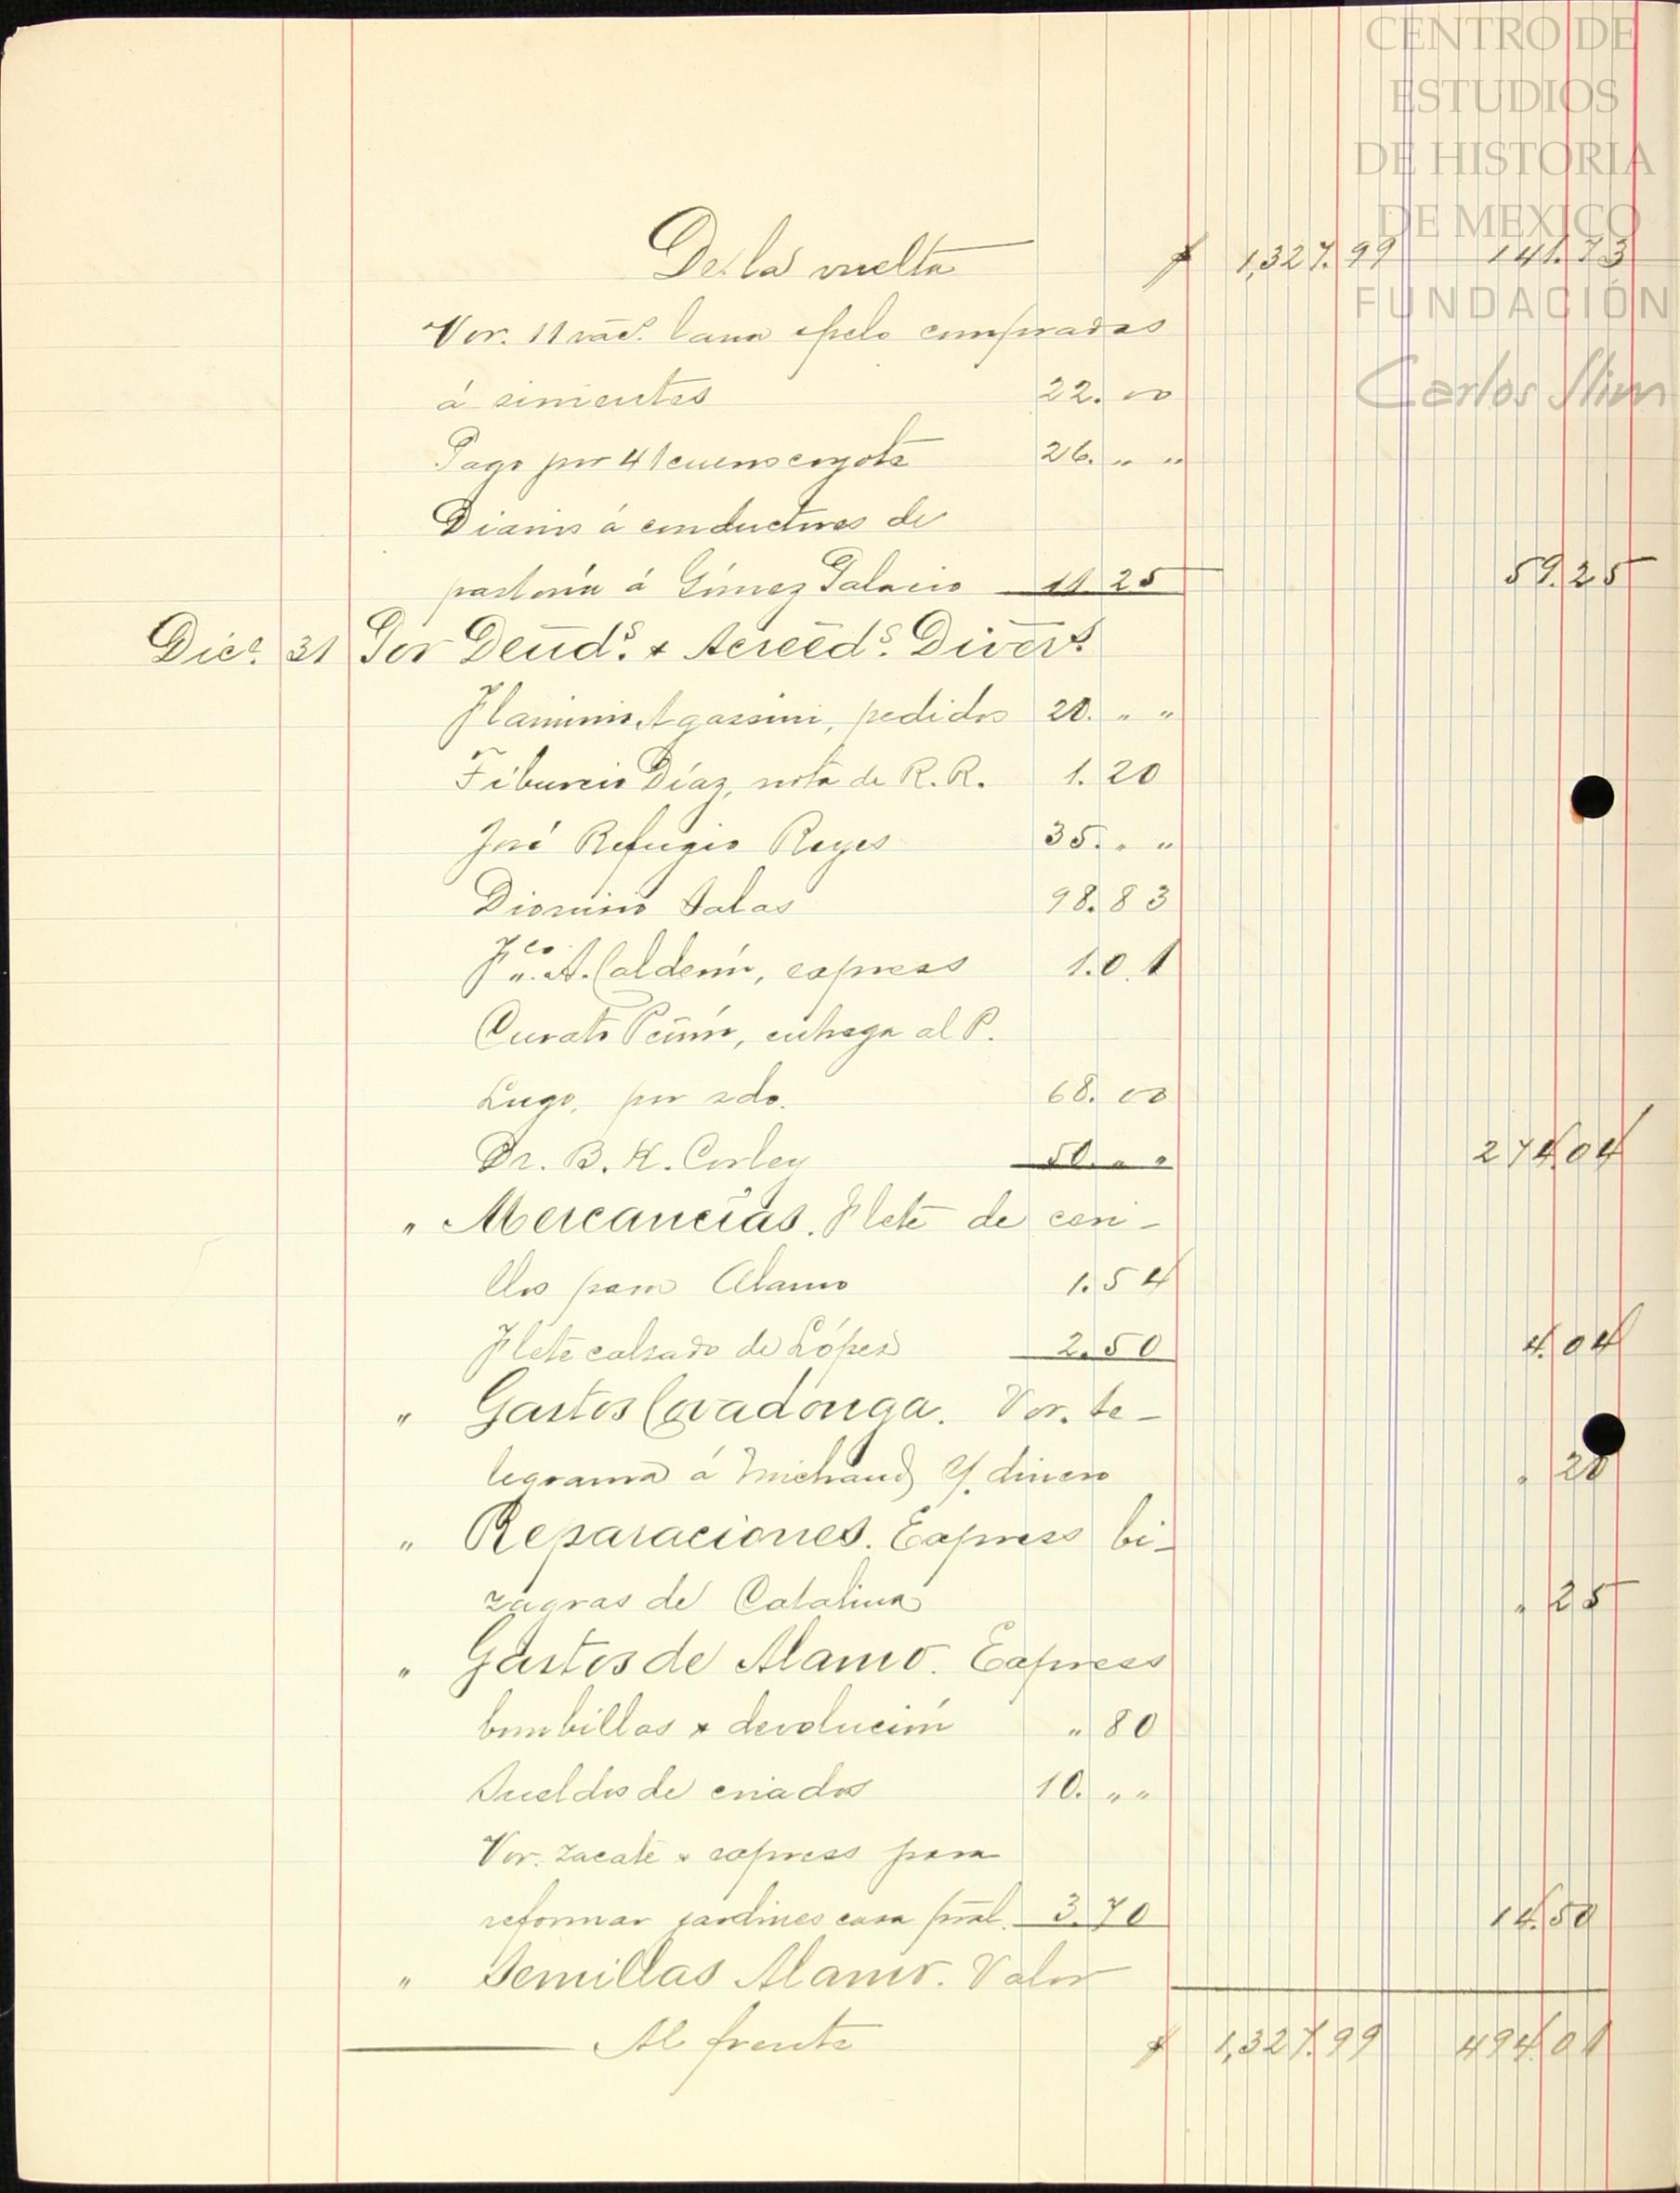 CENTRO DE
ESTUDIOS
DE HISTORIA
DE MEXICO
FUNDACIÓN
Carlos Slim
De la vuelta $ 1,327.99 141.73
Vor. 11 lana pelo compradas
á simientes 22.00
Pago por 41 cueros coyote 26. " "
Diarios á conductores de
pastoría á Gómez Palacio 11.25 59.25
Dice. 31 Por Deuds. & Acreeds. Divers.
Flaminio Agazzini, pedidos 20. " "
Tiburcio Díaz, nota de R.R. 1.20
José Refugio Reyes 35. " "
Dionisio Salas 98.83
Fco. A. Calderón, express 1.01
Curato Peñón, entrega al P.
Lugo, por sdo. 68.00
Dr. B. K. Corley 50. " " 274.04
" Mercancías. Flete de ceri-
llos para Alamo 1.54
Flete calzado de López 2.50 4.04
" Gastos Covadonga. Vor. te-
legrama á Michaud y dinero " 20
" Reparaciones. Express bi-
zagras de Catalina " 25
" Gastos de Alamo. Express
bombillas & devolución " 80
Sueldos de criados 10. " "
Vor. zacate & express para
reformar jardines casa pral. 3.70 14.50
" Semillas Alamo. Valor
Al frente $ 1,327.99 494.01